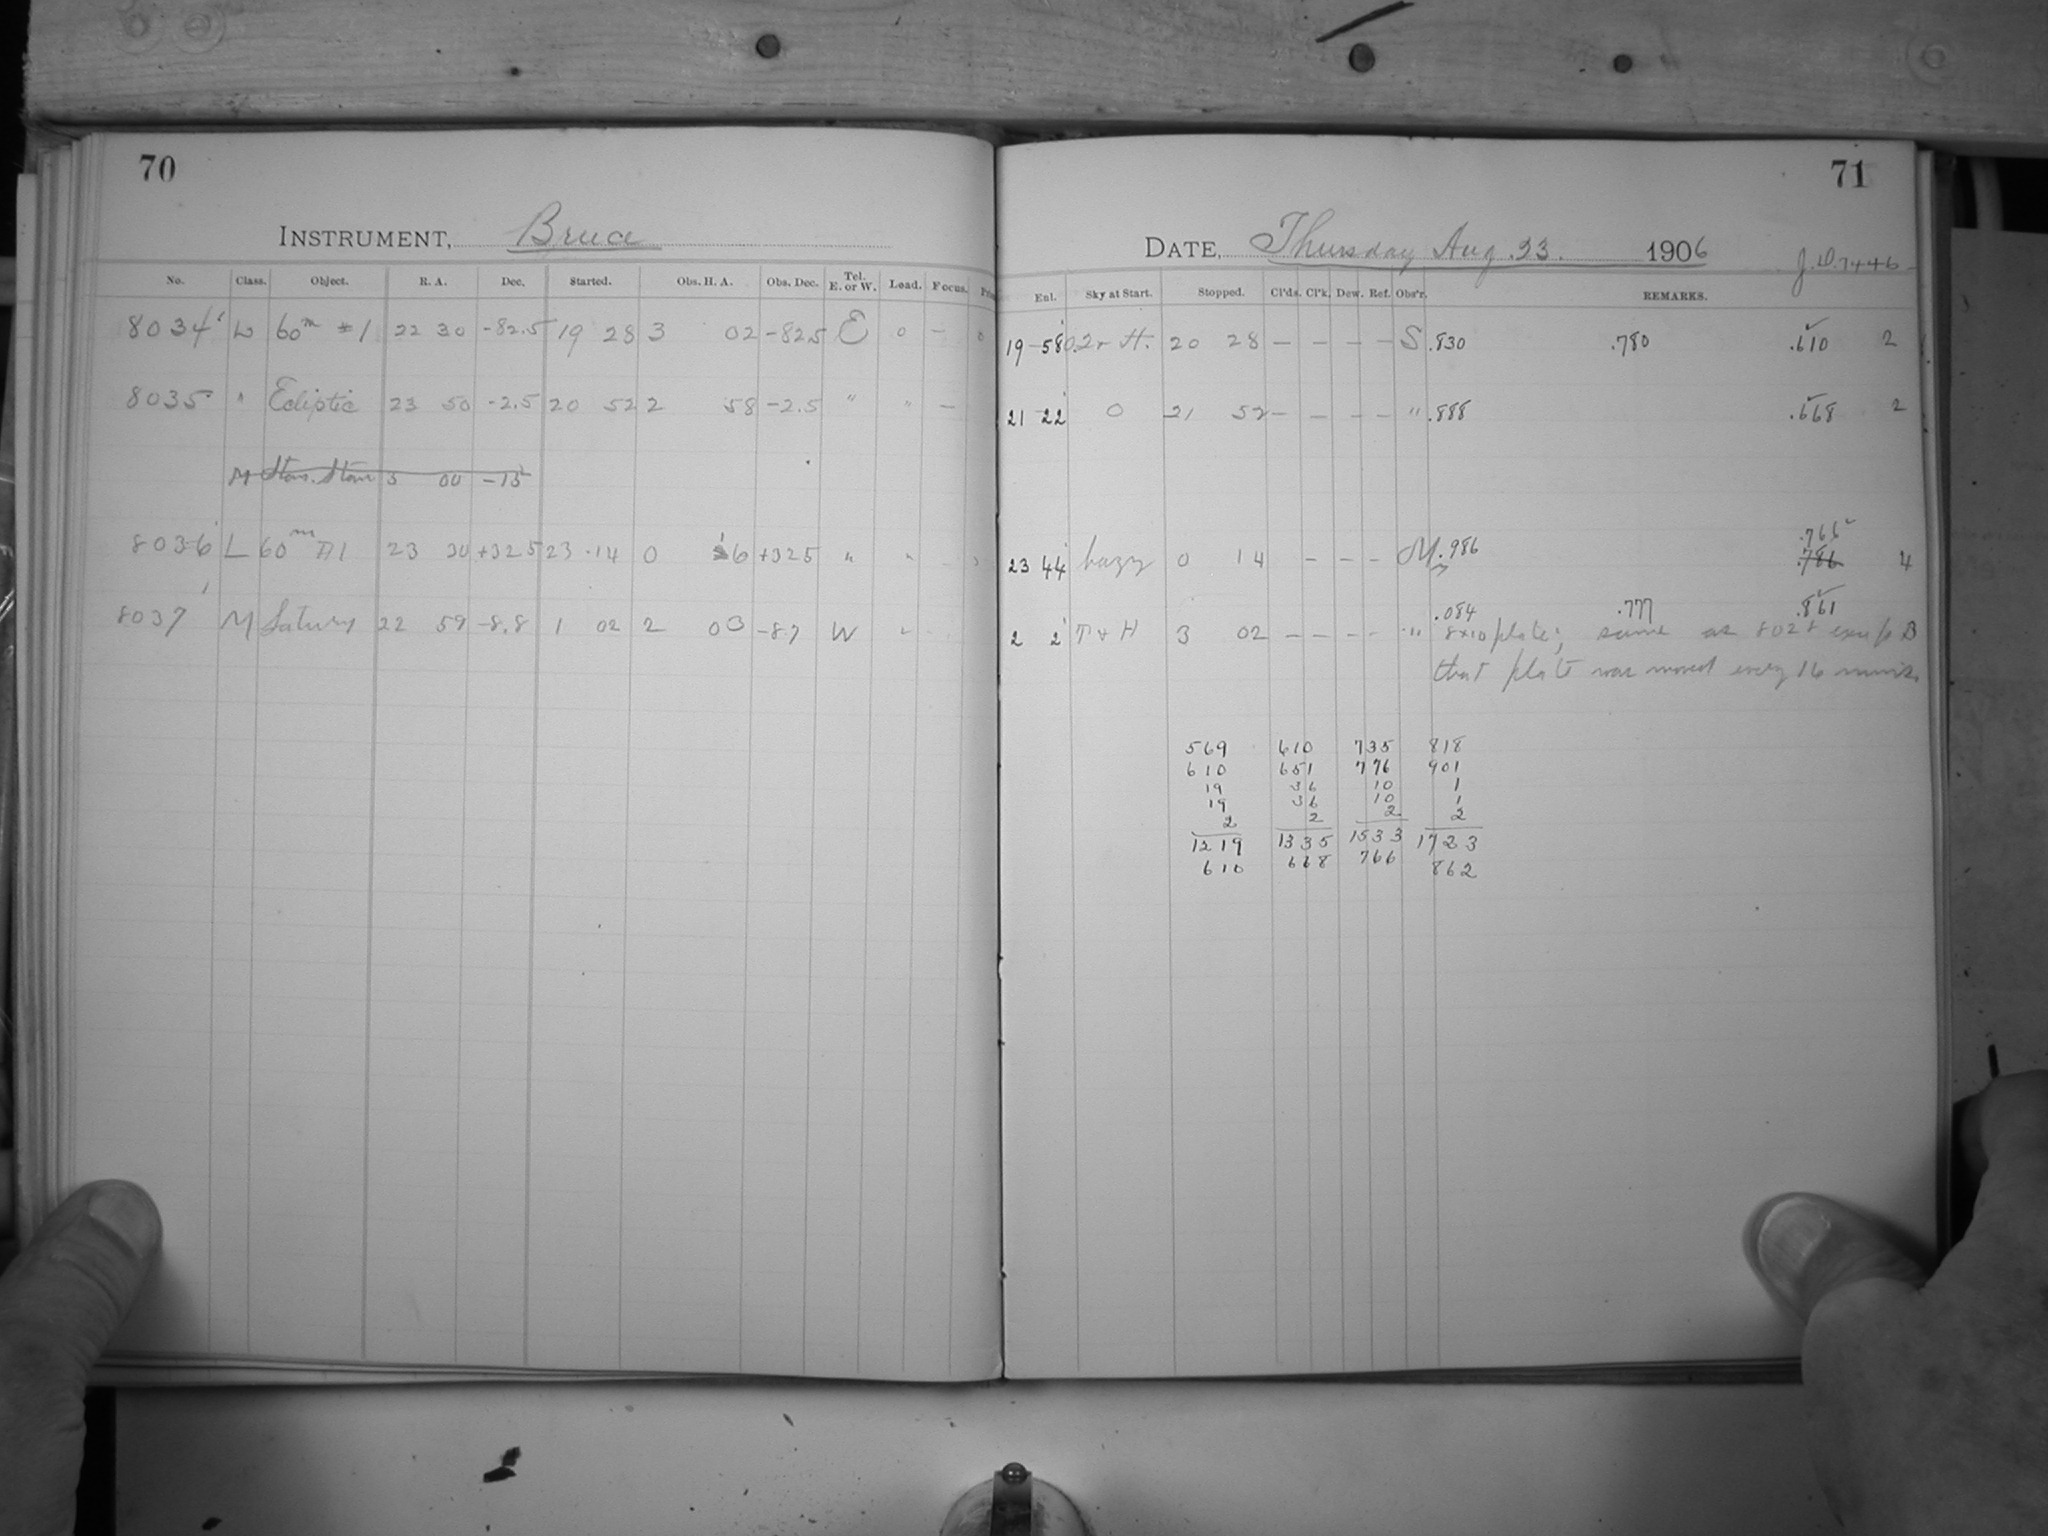 70
INSTRUMENT, Bruce
No. Class. Object. R. A. Dec. Started. Obs. H. A. Obs. Dec. Tel. E. or W. Load. Focus.
8034 L 60m #1 22 30 -82.5 19 28 3 02 -82.5 E 0 - 0
8035 " Ecliptic 23 50 -2.5 20 52 2 58 -2.5 " " -
M 3 00 -15
8036 L 60m #1 23 30 +32.5 23 14 0 16 +32.5 " "
8037 M Saturn 22 59 -8.8 1 02 2 03 -8.7 W "
71
DATE, Thursday Aug. 23. 1906 J.D. 7446
Enl. Sky at Start. Stopped. Cl'ds. Cl'k. Dew. Ref. Obs'r. REMARKS.
19 58 20 28 - - - - S .830 .780 .610 2
21 22 0 21 52 - - - - " .888 .668 2
.766
23 44 hazy 0 14 - - - M .986 .786 4
.084 .777 .861
2 2 3 02 - - - - " 8x10 plate; same as 802 except B
that plate was moved every 16 mins.
569 610 735 818
610 651 776 901
19 36 10 1
19 36 10 1
2 2 2 2
1219 1335 1533 1723
610 668 766 862